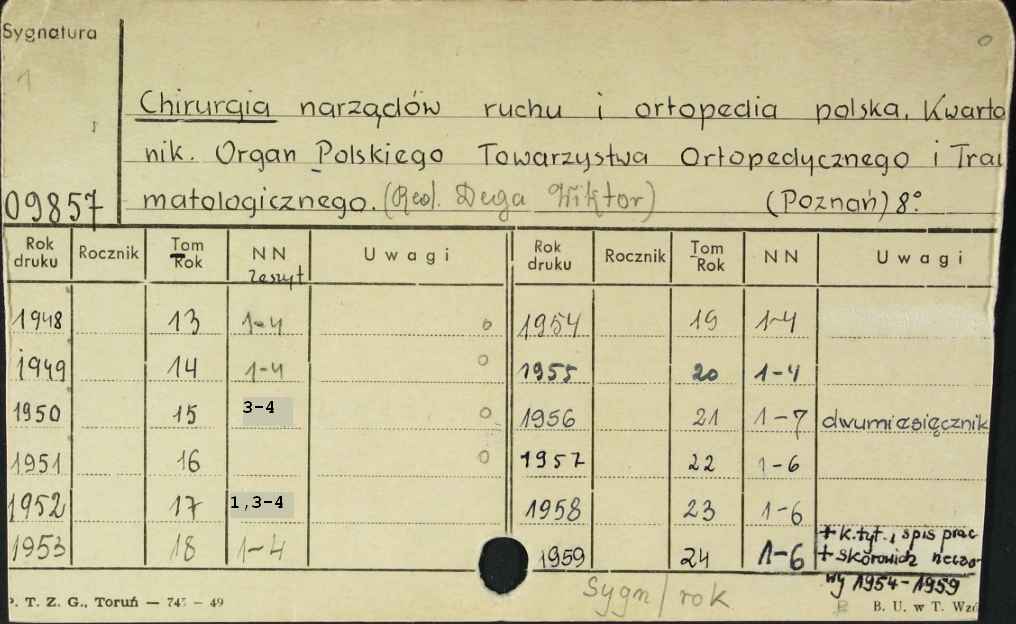 Sygnatura
1
Chirurgia narządów ruchu i ortopedia polska. Kwarta
nik. Organ Polskiego Towarzystwa Ortopedycznego i Trau
09857 matologicznego. (Red. Dega Wiktor) (Poznań) 8°
Rok druku Rocznik Tom Rok NN Zeszyt Uwagi Rok druku Rocznik Tom Rok NN Uwagi
1948 13 1-4 1954 19 1-4
1949 14 1-4 1955 20 1-4
1950 15 3-4 1956 21 1-7 dwumiesięcznik
1951 16 1957 22 1-6
1952 17 1,3-4 1958 23 1-6
1953 18 1-4 1959 24 1-6 + k. tyt. i spis prac
+ skorowidz rzeczo
wy 1954-1959
Sygn/rok
P. T. Z. G., Toruń — 745 — 49 B. U. w T. Wzó